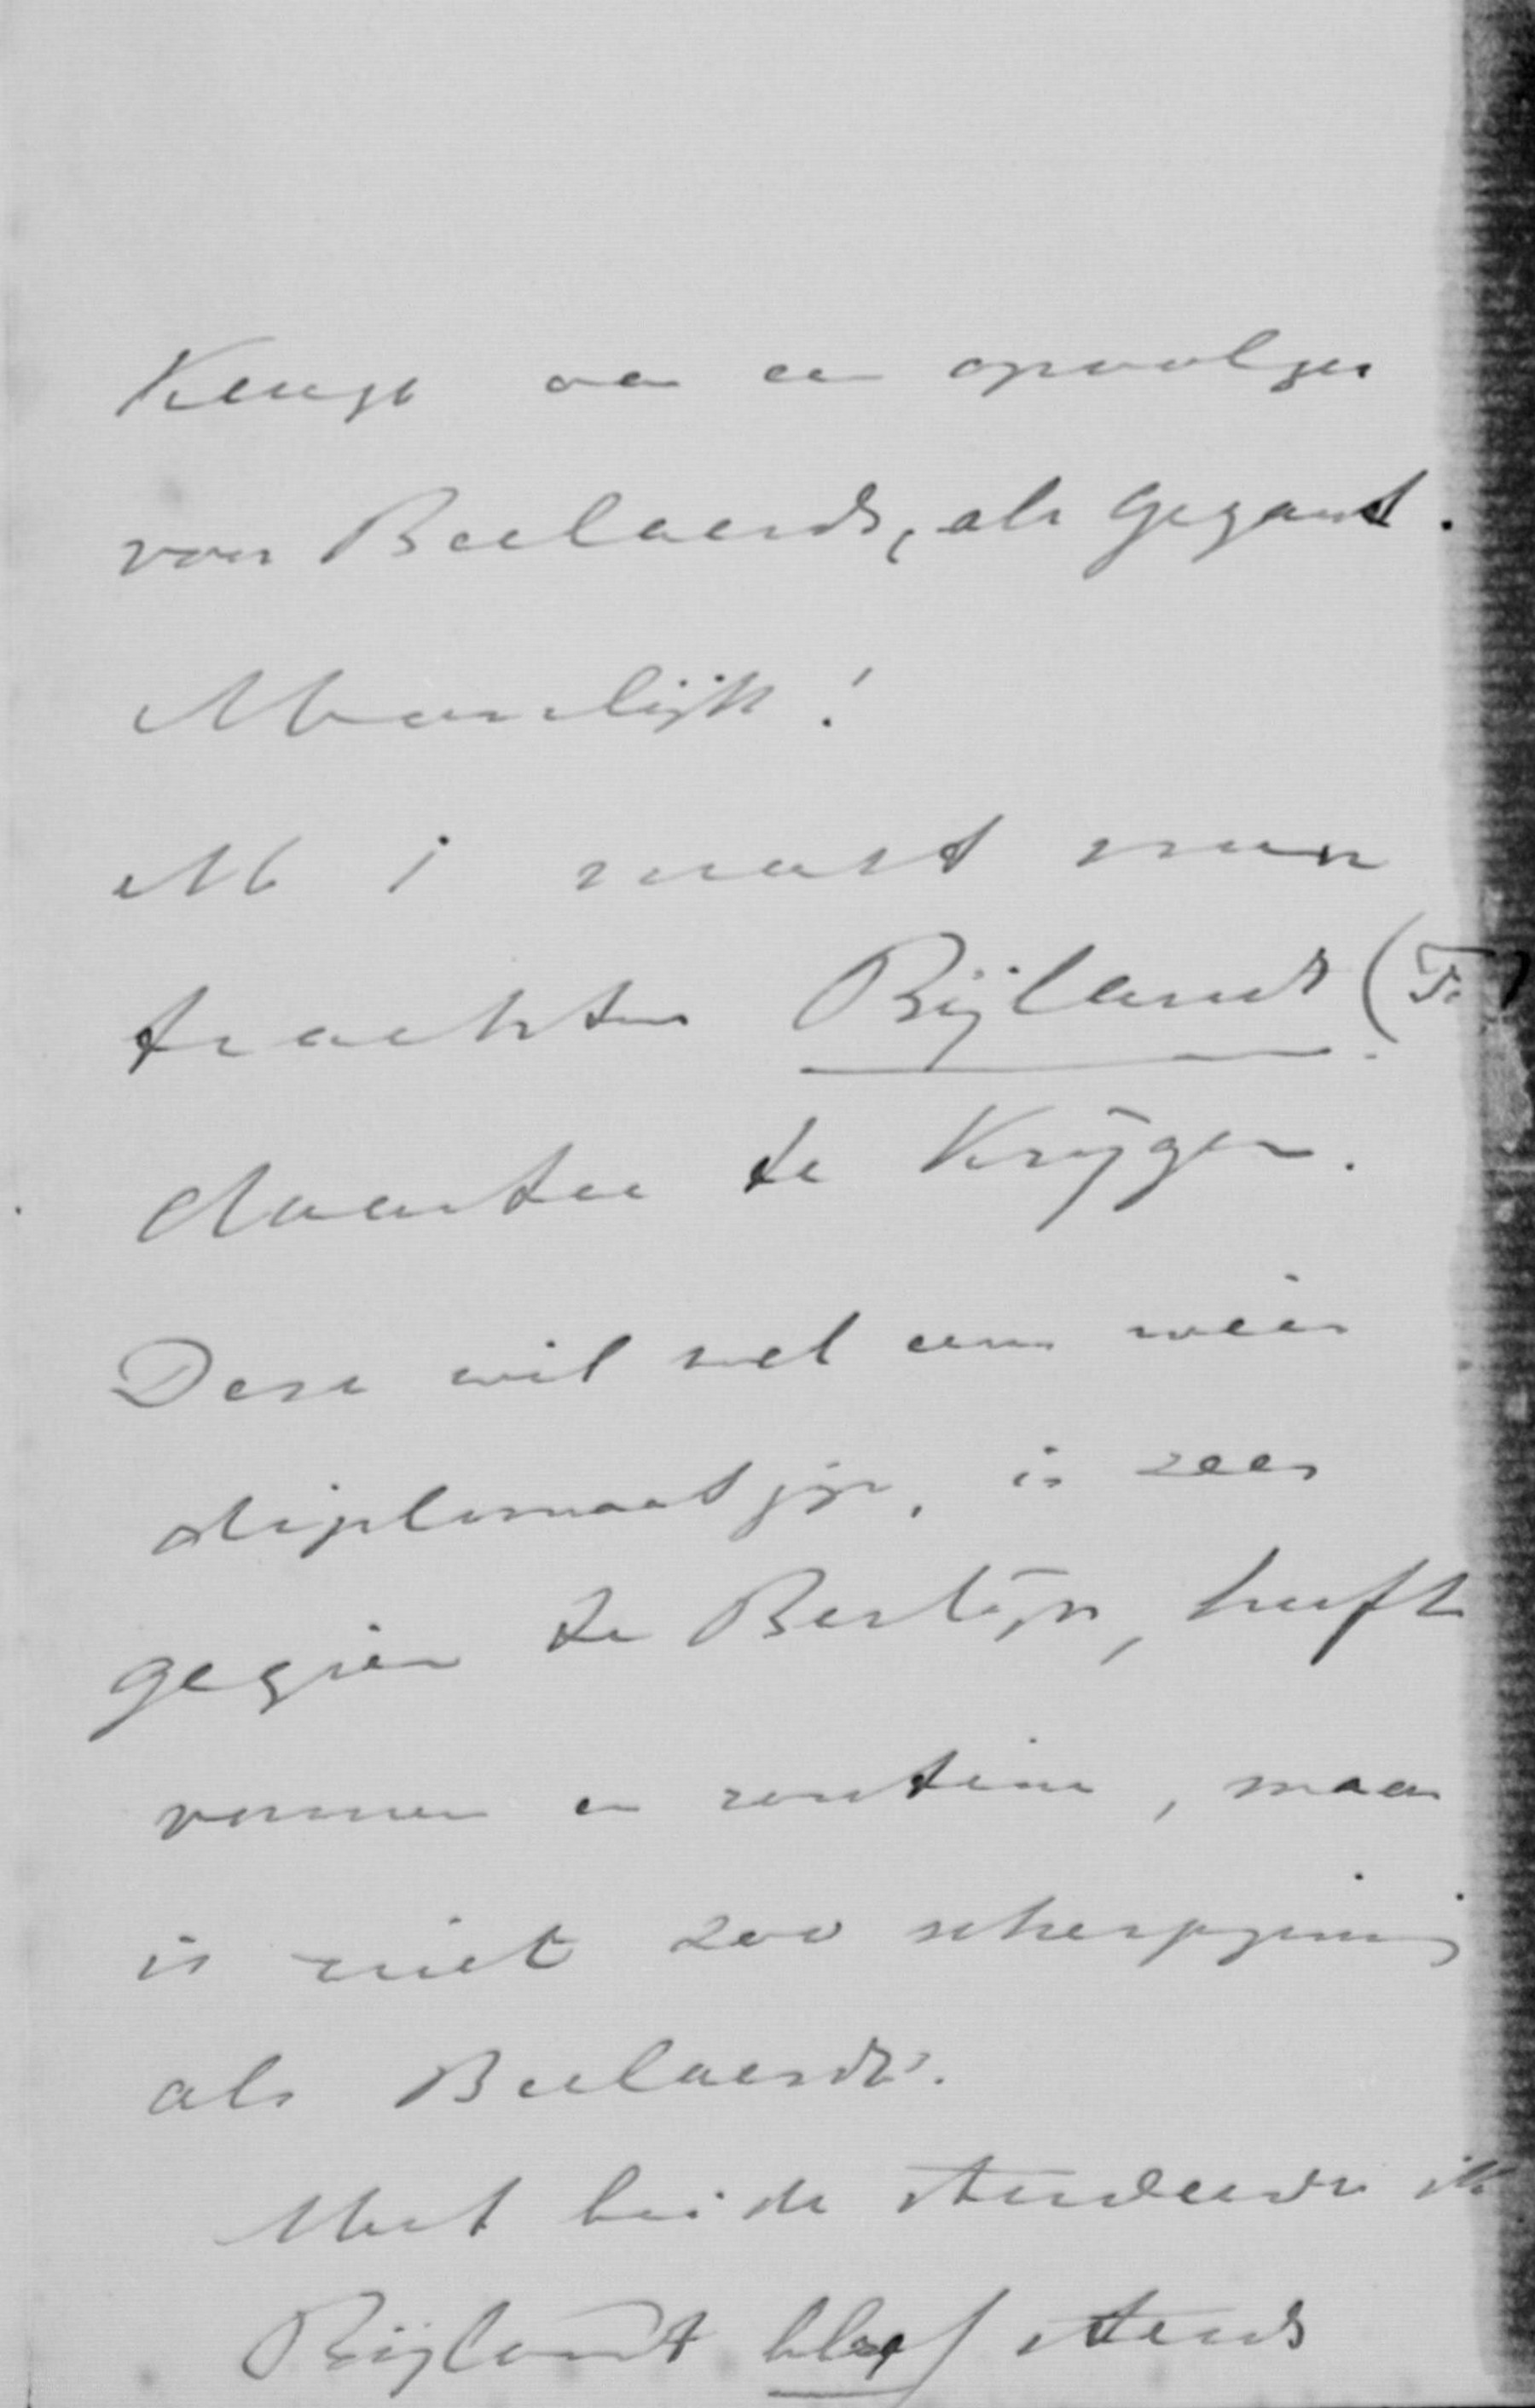 Keuze van een opvolger
voor Beelaerts, als gezant.
Moeielijk!
M i moet men
trachten Bijlandt (F.)
daartoe te krijgen.
Deze wil wel eens weêr
diplomaatje, is zeer
gezien te Berlijn, heeft
vormen en routine, maar
is niet zoo scherpzinnig
als Beelaerts.
Met beide studeerde ik
Bijlandt bleef steeds